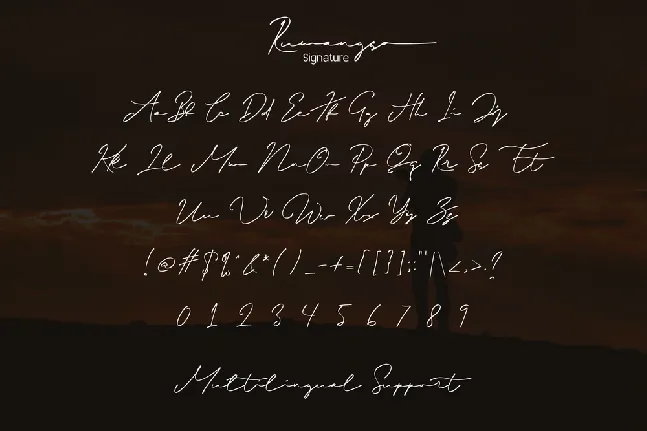 Ruwangso
Signature
Aa Bb Cc Dd Ee Ff Gg Hh Ii Jj
Kk Ll Mm Nn Oo Pp Qq Rr Ss Tt
Uu Vv Ww Xx Yy Zz
!@#$%^&*()_-+={[}]:;"'|\<,>.?
0 1 2 3 4 5 6 7 8 9
Multilingual Support